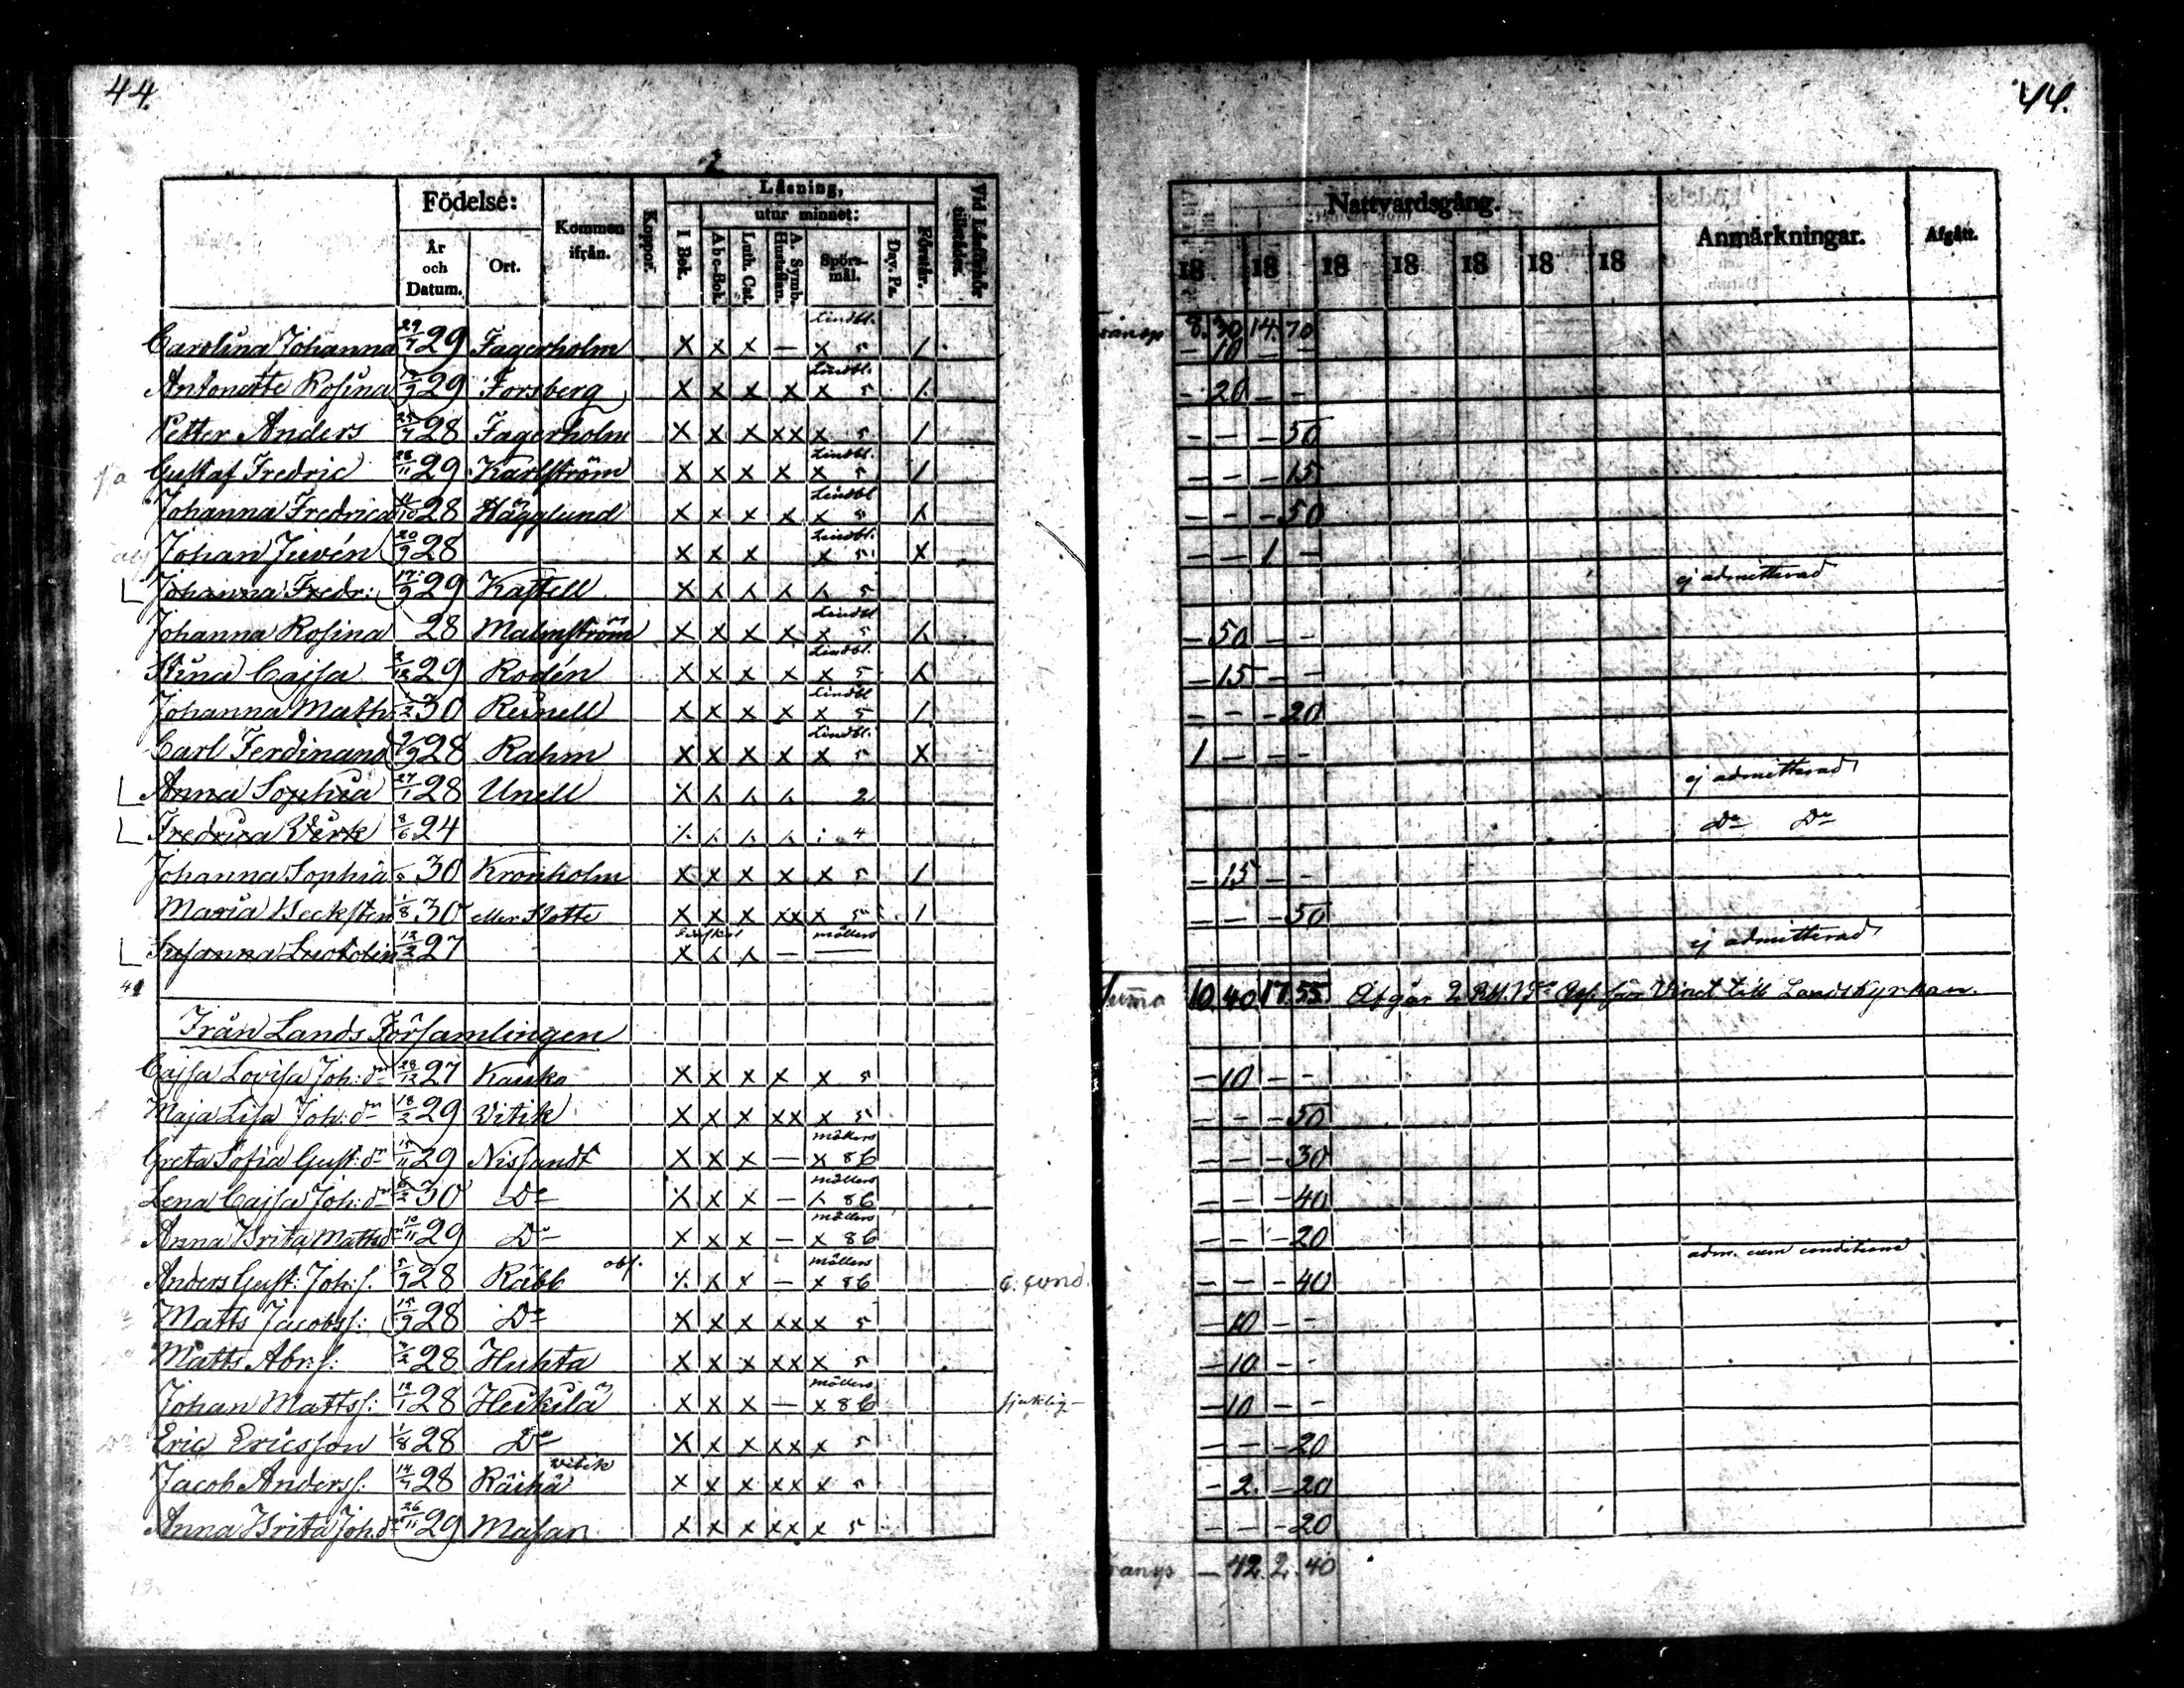 44.
2
Födelse: Kommen ifrån. Koppor. Läsning, Vid Läsförhör tillstädes.
År och Datum. Ort. I Bok. utur minnet: Förstår.
Abc-Bok. Luth. Cat. A. Symb. Hustaflan. Spörsmål. Dav. Ps.
Carolina Johanna 29/7 29 Fagerholm x x x — Lindbl. x 5 /.
Antonette Rosina 29 Forsberg x x x x Lindbl. x 5 /.
Petter Anders 25/7 28 Fagerholm x x x xx x 5 /
Gustaf Fredric 28/11 29 Karlström x x x x Lindbl. x 5 /
Johanna Fredrica 11/10 28 Hägglund x x x x Lindbl x 5
Johan Juvén 20/9 28 x x x Lindbl. x 5 x
Johanna Fredr: 17/9 29 Kastell x 5
Johanna Rosina 28 Malmström x x x x Lindbl x 5
Stina Cajsa 29 Rodén x x x x Lindbl. x 5
Johanna Math: 1/2 30 Reinell x x x x Lindbl x 5 /
Carl Ferdinand 28 Rahm x x x x Lindbl. x 5 x
Anna Sophia 27/1 28 Unell x 2
Fredrica Virk 8/6 24 4
Johanna Sophia 30 Kronholm x x x x x 5 /
Maria Becksten 1/8 30 eller Slotte x x x xx x 5 /
Susanna 12/2 27 x möllers —
Från Lands Församlingen
Cajsa Lovisa Joh: dr 28/12 27 Kauko x x x x x 5
Maja Lisa Joh: dr 18/2 29 Vitik x x x xx x 5
Greta Sofia Gust: dr 15/11 29 Nissandt x x x — möllers x 86
Lena Cajsa Joh: dr 30 Do x x x — möllers 86
Anna Brita Mattsd 10/11 29 Do x x x — möllers x 86
Anders Gust: Joh: s. 5/7 28 Räbb obs. x x — möllers x 86 c. cond.
Matts Jacobss: 15/9 28 Do x x x xx x 5
Matts Abr: s: 28 Huhta x x x xx x 5
Johan Mattss: 28 Heikilä x x x — möllers x 86 sjuklig
Eric Ericsson 1/8 28 Do x x x xx x 5
Jacob Anderss: 14/7 28 Räihä Vitik x x x xx x 5
Anna Brita Joh: d 26/11 29 Masan x x x xx x 5
44.
Nattvardsgång. Anmärkningar. Afgått.
18 18 18 18 18 18 18
8. 30 14. 70
— 10 — —
— 20 — —
— — — 50
— — — 15
— — — 50
— — 1 —
ej admitterad
— 50 — —
— 15 — —
— — — 20
1 — — —
ej admitterad
Do Do
— 15 — —
— — — 50
ej admitterad
Suma 10. 40. 17. 55. Afgår 2 för Vinet till Landskyrkan.
— 10 — —
— — — 50
— — — 30
— — — 40
— — — 20
adm. cum conditione
— — — 40
— 10 — —
— 10 — —
— 10 — —
— — — 20
— 2. — 20
— — — 20
— 42. 2. 40